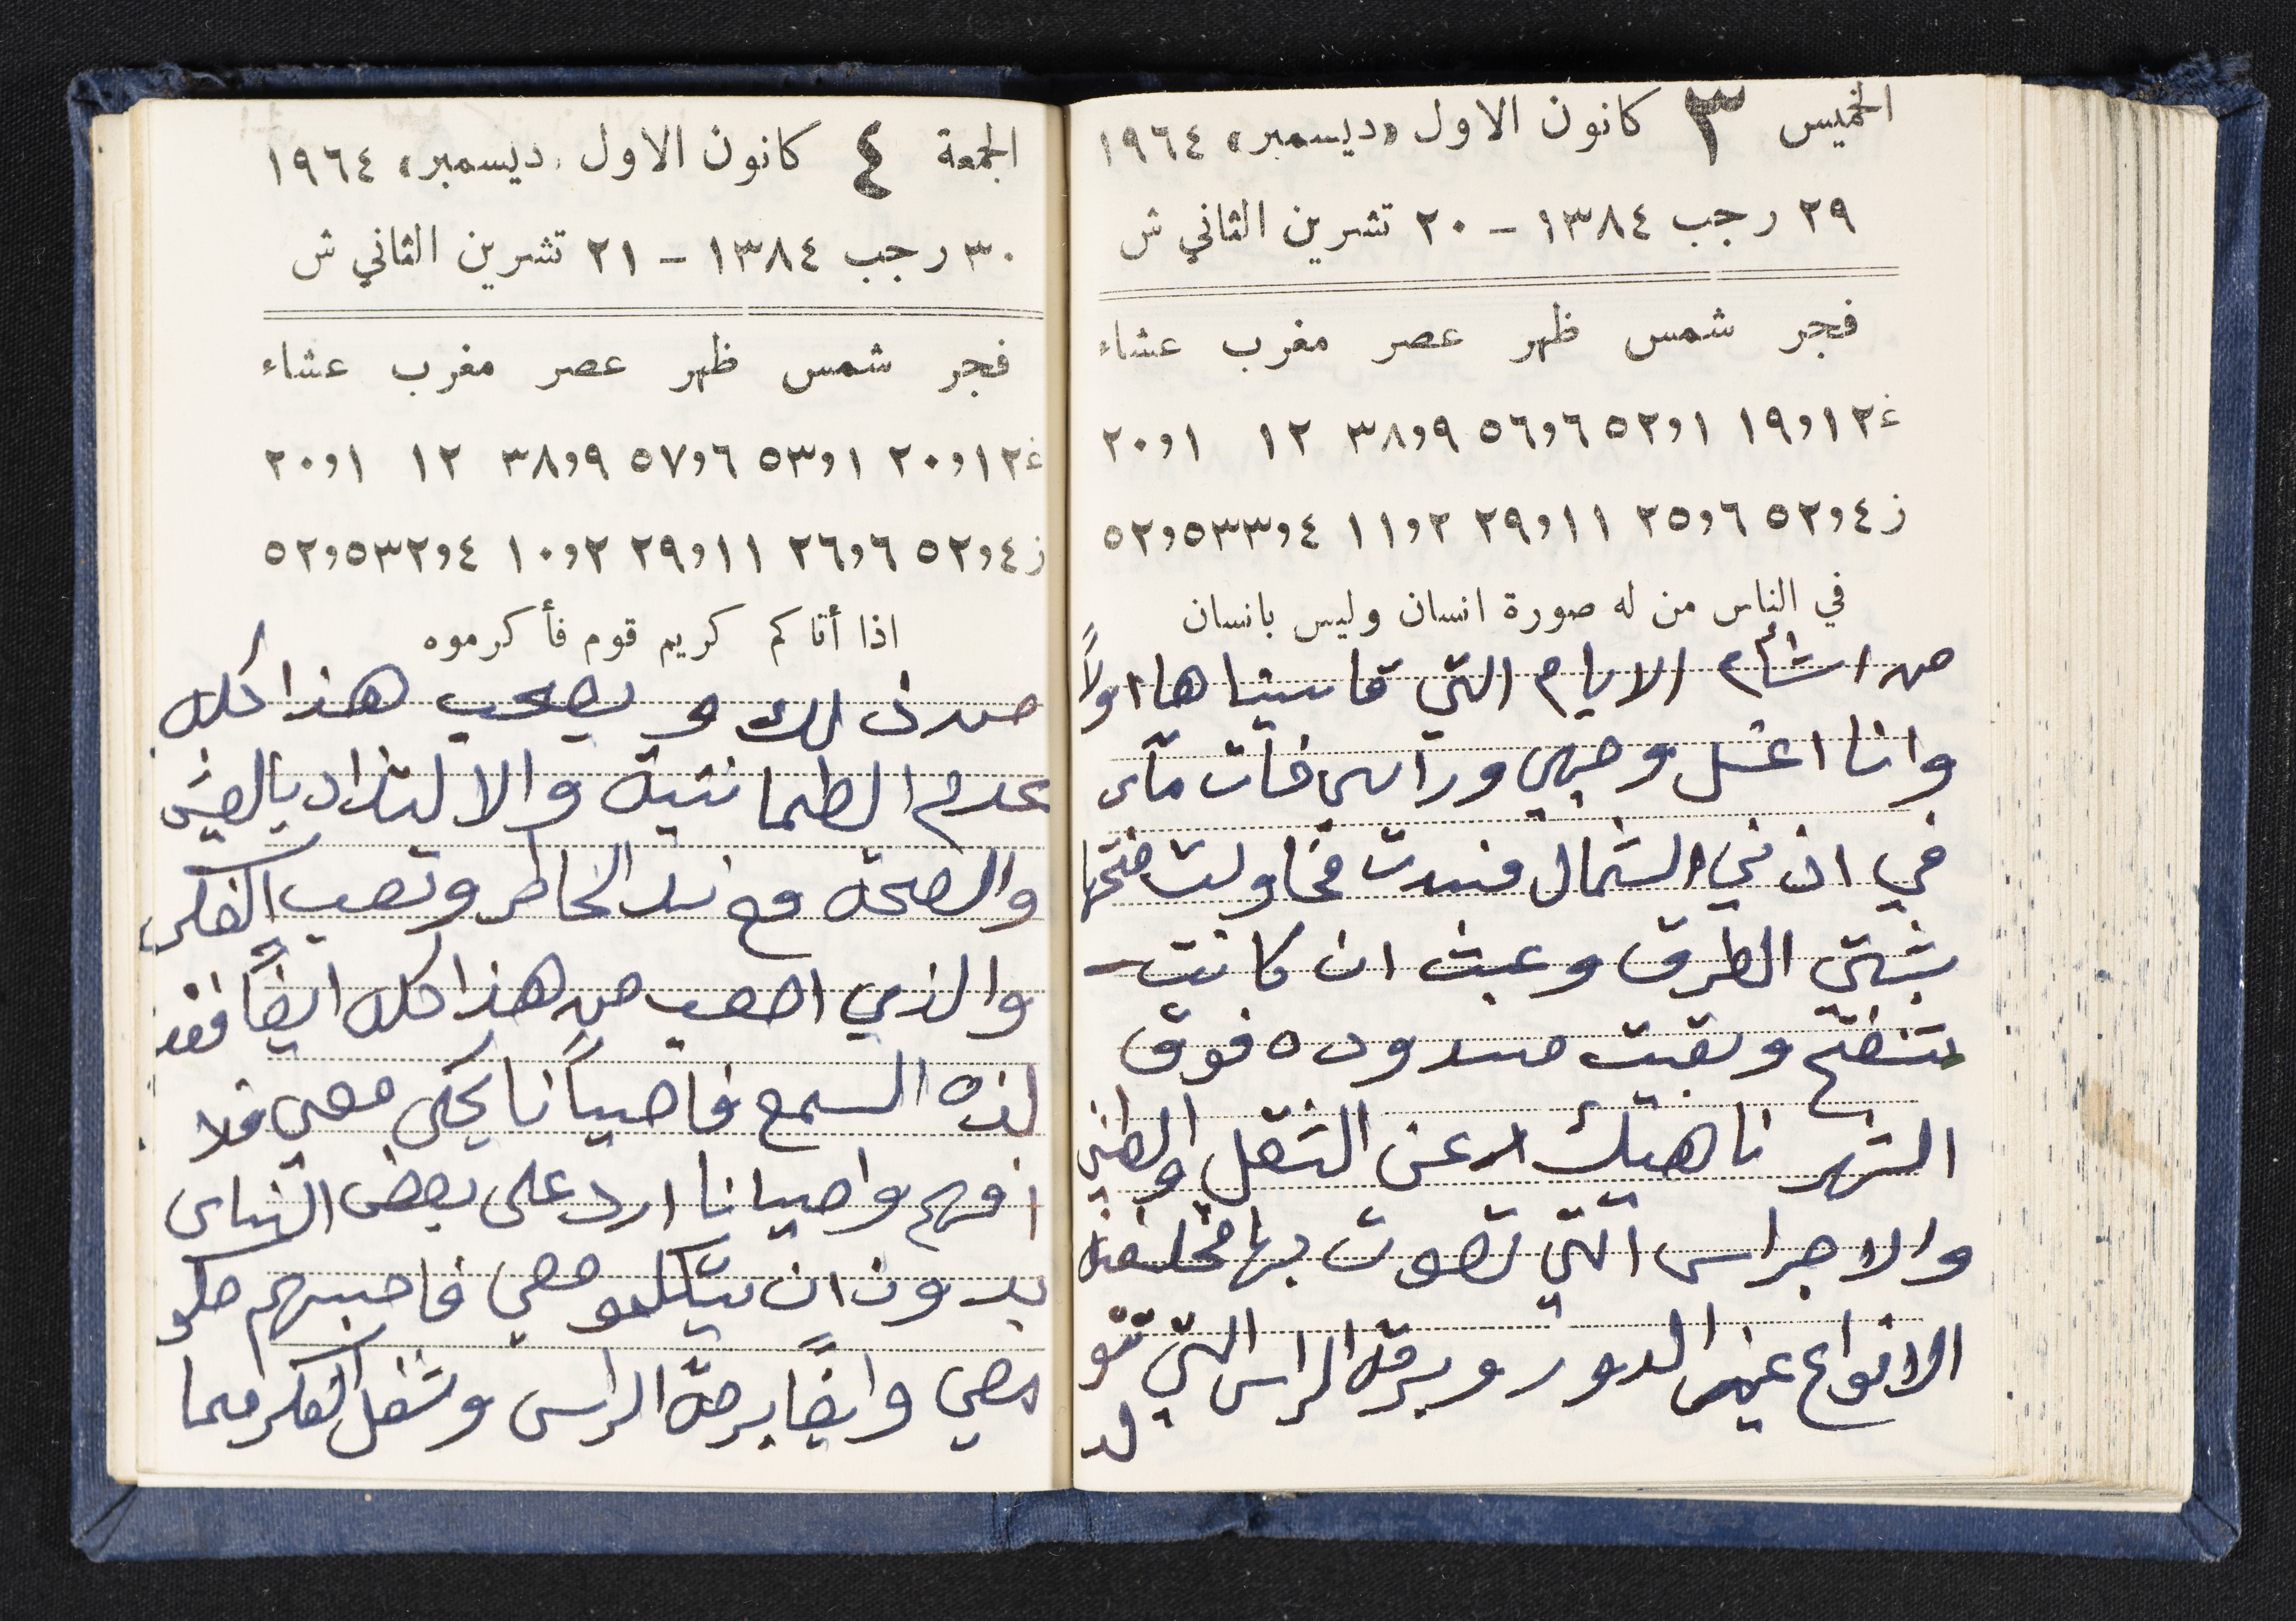 الخميس ٣ كانون الاول «ديسمبر» ١٩٦٤
٢٩ رجب ١٣٨٤ – ٢٠ تشرين الثاني ش
فجر شمس ظهر عصر مغرب عشاء
غ ١٢و١٩ ١و٥٢ ٦و٥٦ ٩و٣٨ ١٢ ١و٢٠
ز ٤و٥٢ ٦و٢٥ ١١و٢٩ ٢و١١ ٤و٣٣ ٥و٥٢
في الناس من له صورة انسان وليس بانسان
من اشأم الايام التي قاسيناها اولاً
وانا اغسل وجهي وراسي فات ماء
في اذني الشمال فسدت فحاولت فتحها
بشتى الطرق وعبث ان كانت
تنفتح وبقيت مسدوده فوق
الشهر ناهيك عن الثقل والطنين
والاجراس التي تصوت بها مختلفة
الانواع غير الدور وبرقة الراس التي تتو
لد
الجمعة ٤ كانون الاول «ديسمبر» ١٩٦٤
٣٠ رجب ١٣٨٤ – ٢١ تشرين الثاني ش
فجر شمس ظهر عصر مغرب عشاء
غ ١٢و٢٠ ١و٥٣ ٦و٥٧ ٩و٣٨ ١٢ ١و٢٠
ز ٤و٥٢ ٦و٢٦ ١١و٢٩ ٢و١٠ ٤و٣٢ ٥و٥٢
اذا أتاكم كريم قوم فأكرموه
من ذلك و يصحب هذا كله
عدم الطمانينة والالتذاد بالعيش
والصحة مع الخاطر وتعب الفكر
والذي اصعب من هذا كله ايضاً فقد
لذة السمع فاحياناً يحكى معي فلا
افهم واحيانا ارد على بعض الناس
بدون ان يتكلمو معي فاحسبهم حكو
معي وايضاً برحة الراس وشغل الفكر مما